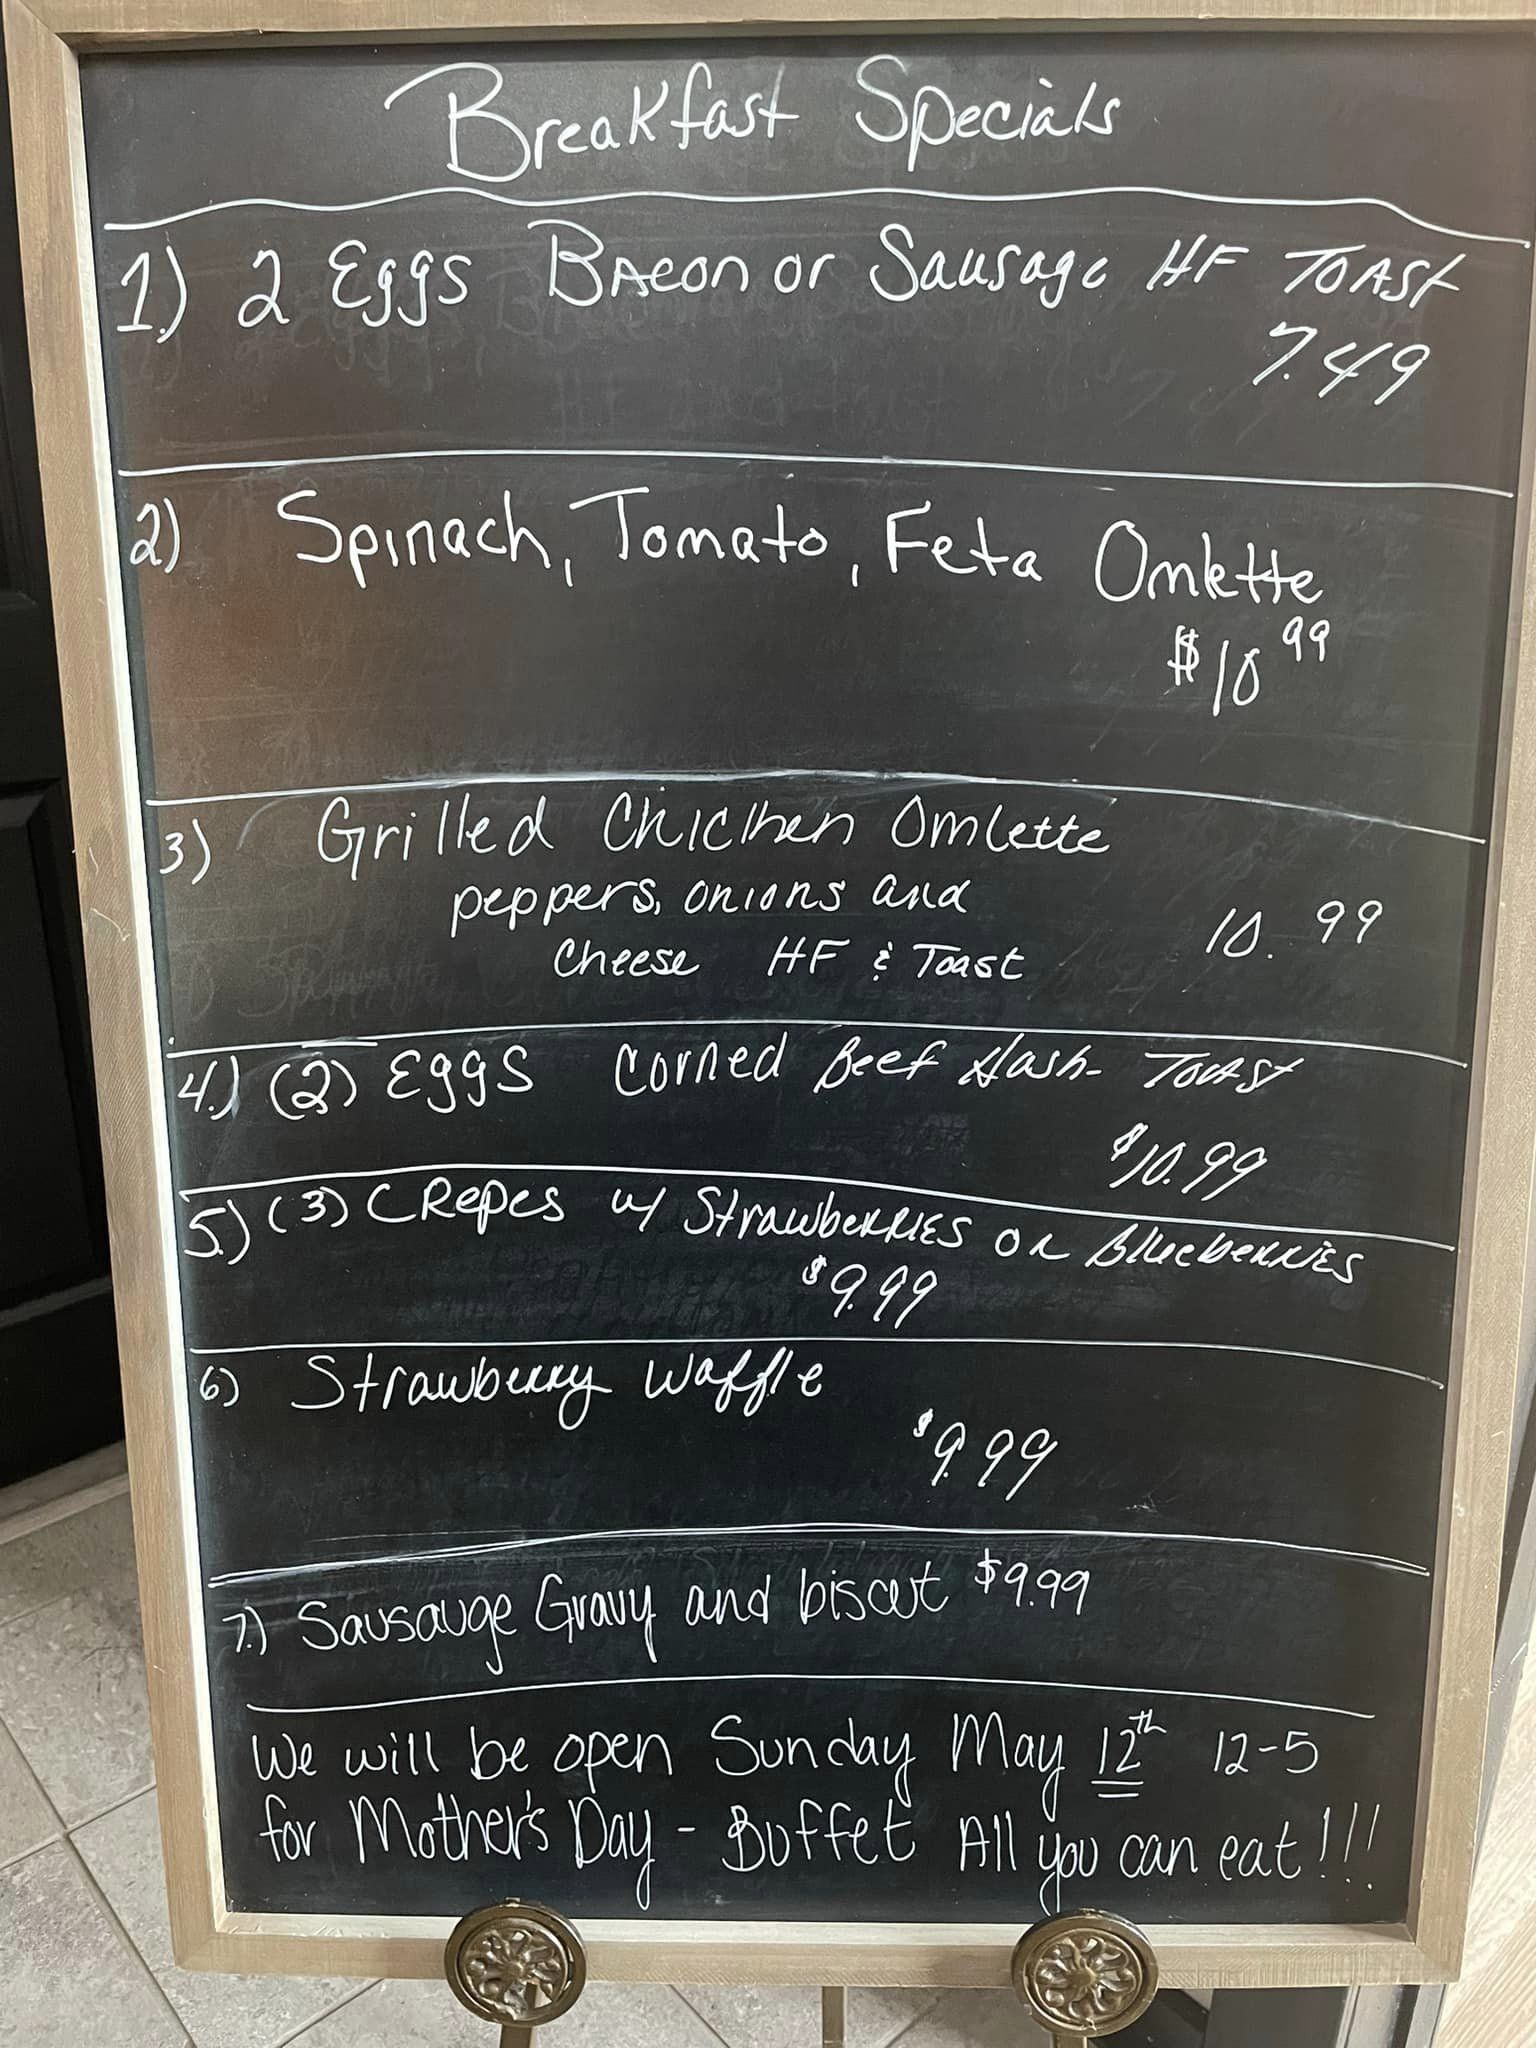 Breakfast Specials
1.) 2 Eggs Bacon or Sausage HF Toast
7.49
2) Spinach, Tomato, Feta Omlette
$10.99
3) Grilled Chicken Omlette
peppers, onions and
Cheese HF & Toast 10.99
4.) (2) Eggs Corned Beef Hash- Toast
$10.99
5.) (3) Crepes w/ Strawberries or Blueberries
$9.99
6) Strawberry Waffle
$9.99
7.) Sausauge Gravy and biscut $9.99
We will be open Sunday May 12th 12-5
for Mother's Day - Buffet All you can eat!!!